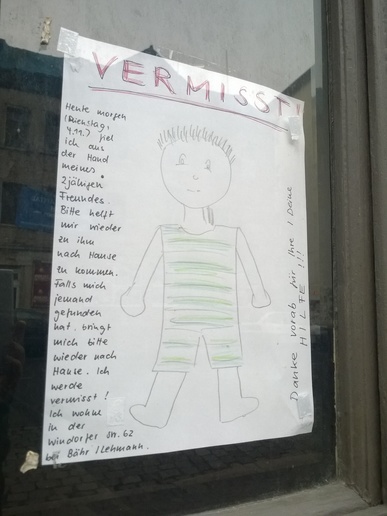 VERMISST!
Heute morgen
(Dienstag,
4.11.) fiel
ich aus
der Hand
meines
2jährigen
Freundes.
Bitte helft
mir wieder
zu ihm
nach Hause
zu kommen.
Falls mich
jemand
gefunden
hat, bringt
mich bitte
wieder nach
Hause. Ich
werde
vermisst!
Ich wohne
in der
Windorfer Str. 62
bei Bähr / Lehmann.
Danke vorab für Ihre / Deine
HILFE!!!